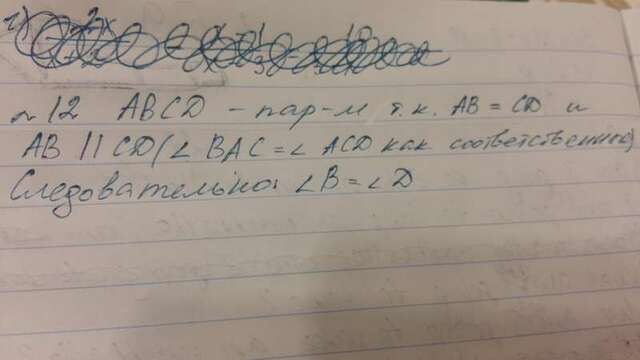 ~12 ABCD - пар-м т.к. AB = CD и
AB || CD (∠ BAC = ∠ ACD как соответственные)
Следовательно: ∠B = ∠D